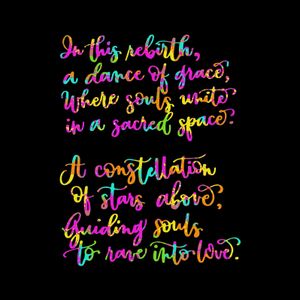 In this rebirth,
a dance of grace,
Where souls unite
in a sacred space.
A constellation
of stars above,
Guiding souls
to rave into love.